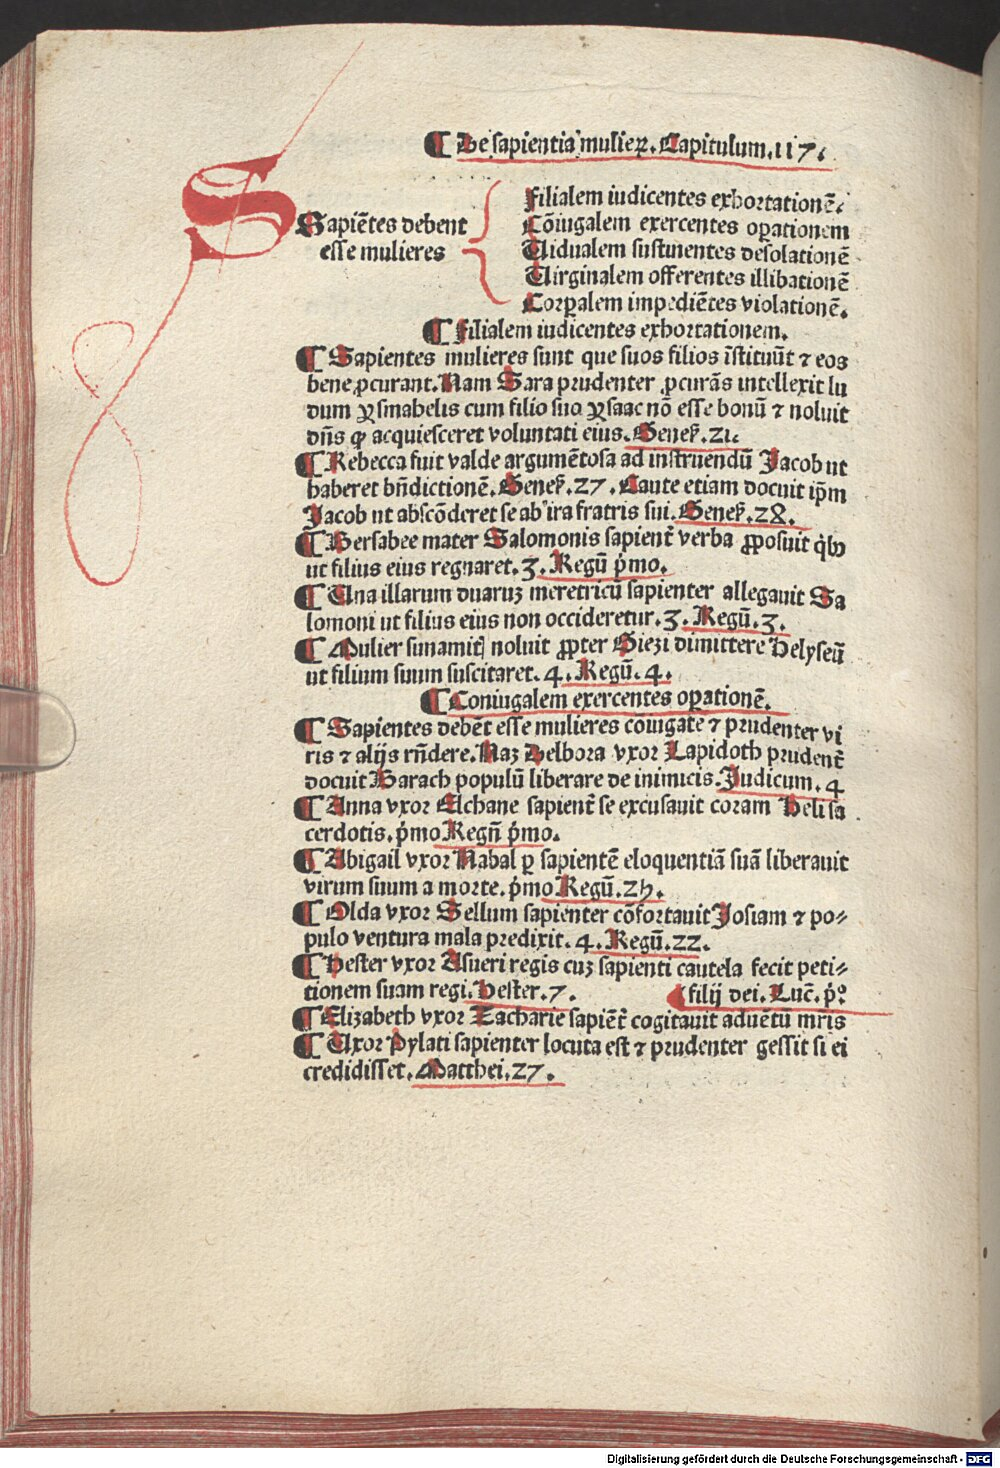 ¶ De sapientia mulieꝝ. Capitulum.117.
S
Sapiẽtes debent
esse mulieres
Filialem iudicentes exhortationẽ.
Cõiugalem exercentes oꝑationem
Uidualem sustinentes desolationẽ
Uirginalem offerentes illibationẽ
Corꝑalem impediẽtes violationẽ.
¶ Filialem iudicentes exhortationem.
¶ Sapientes mulieres sunt que suos filios ĩstituũt ⁊ eos
bene ꝓcurant. Nam Sara prudenter ꝓcurãs intellexit lu
dum ysmahelis cum filio suo ysaac nõ esse bonũ ⁊ noluit
dñs ꝙ acquiesceret voluntati eius. Geneẜ.21.
¶ Rebecca fuit valde argumẽtosa ad instruendũ Jacob ut
haberet bñdictionẽ. Geneẜ.27. Caute etiam docuit ip̃m
Jacob ut abscõderet se ab ira fratris sui. Geneẜ.28.
¶ Bersabee mater Salomonis sapient̃ verba ꝓposuit q̇bꝰ
ut filius eius regnaret.3. Regũ p̃mo.
¶ Una illarum duaruꝫ meretricũ sapienter allegauit Sa
lomoni ut filius eius non occideretur.3. Regũ.3.
¶ Mulier sunamit̃ noluit ꝓpter Giezi dimittere Helyseũ
ut filium suum suscitaret.4. Regũ.4.
¶ Coniugalem exercentes oꝑationẽ.
¶ Sapientes debẽt esse mulieres cõiugate ⁊ prudenter vi
ris ⁊ alijs rñdere. Naꝫ Delbora vxor Lapidoth prudent̃
docuit Barach populũ liberare de inimicis. Judicum.4
¶ Anna vxor Elchane sapient̃ se excusauit coram Heli sa
cerdotis. p̃mo Regũ p̃mo.
¶ Abigail vxor Nabal ꝑ sapientẽ eloquentiã suã liberauit
virum suum a morte. p̃mo Regũ.25.
¶ Olda vxor Sellum sapienter cõfortauit Josiam ⁊ po⸗
pulo ventura mala predixit.4. Regũ.22.
¶ Hester vxor Asueri regis cuꝫ sapienti cautela fecit peti⸗
tionem suam regi. Hester.7. ¶ filij dei. Luc̃. p̃º
¶ Elizabeth vxor Zacharie sapiẽt̃ cogitauit aduẽtũ mr̃is
¶ Uxor Pylati sapienter locuta est ⁊ prudenter gessit si ei
credidisset. Matthei.27.
Digitalisierung gefördert durch die Deutsche Forschungsgemeinschaft - DFG